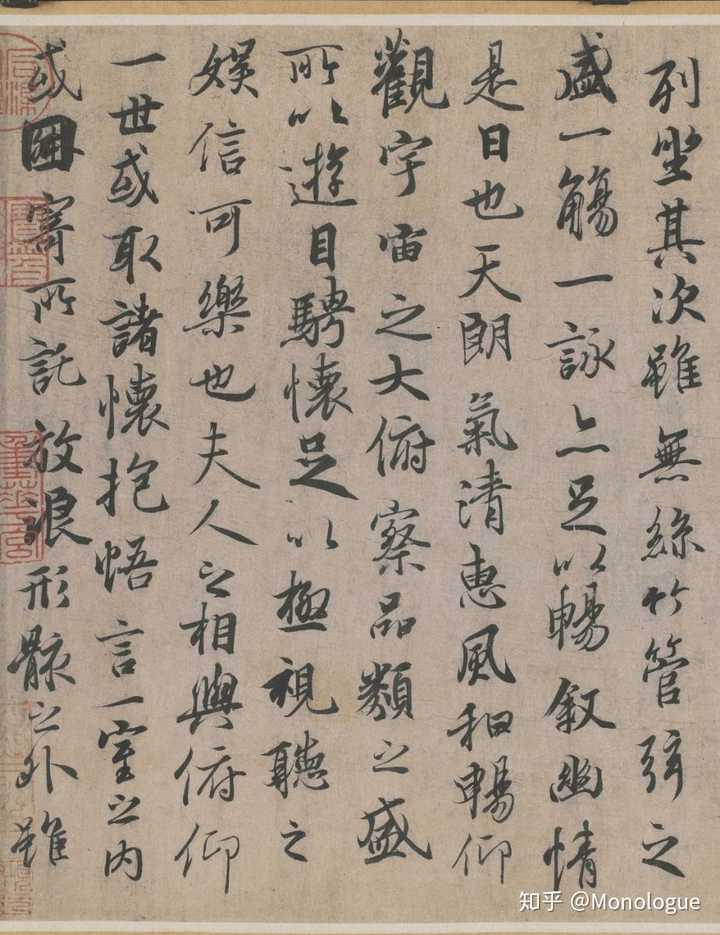 列坐其次雖無絲竹管弦之
盛一觴一詠亦足以暢敘幽情
是日也天朗氣清惠風和暢仰
觀宇宙之大俯察品類之盛
所以遊目騁懷足以極視聽之
娛信可樂也夫人之相與俯仰
一世或取諸懷抱悟言一室之內
或因寄所託放浪形骸之外雖
知乎 @Monologue